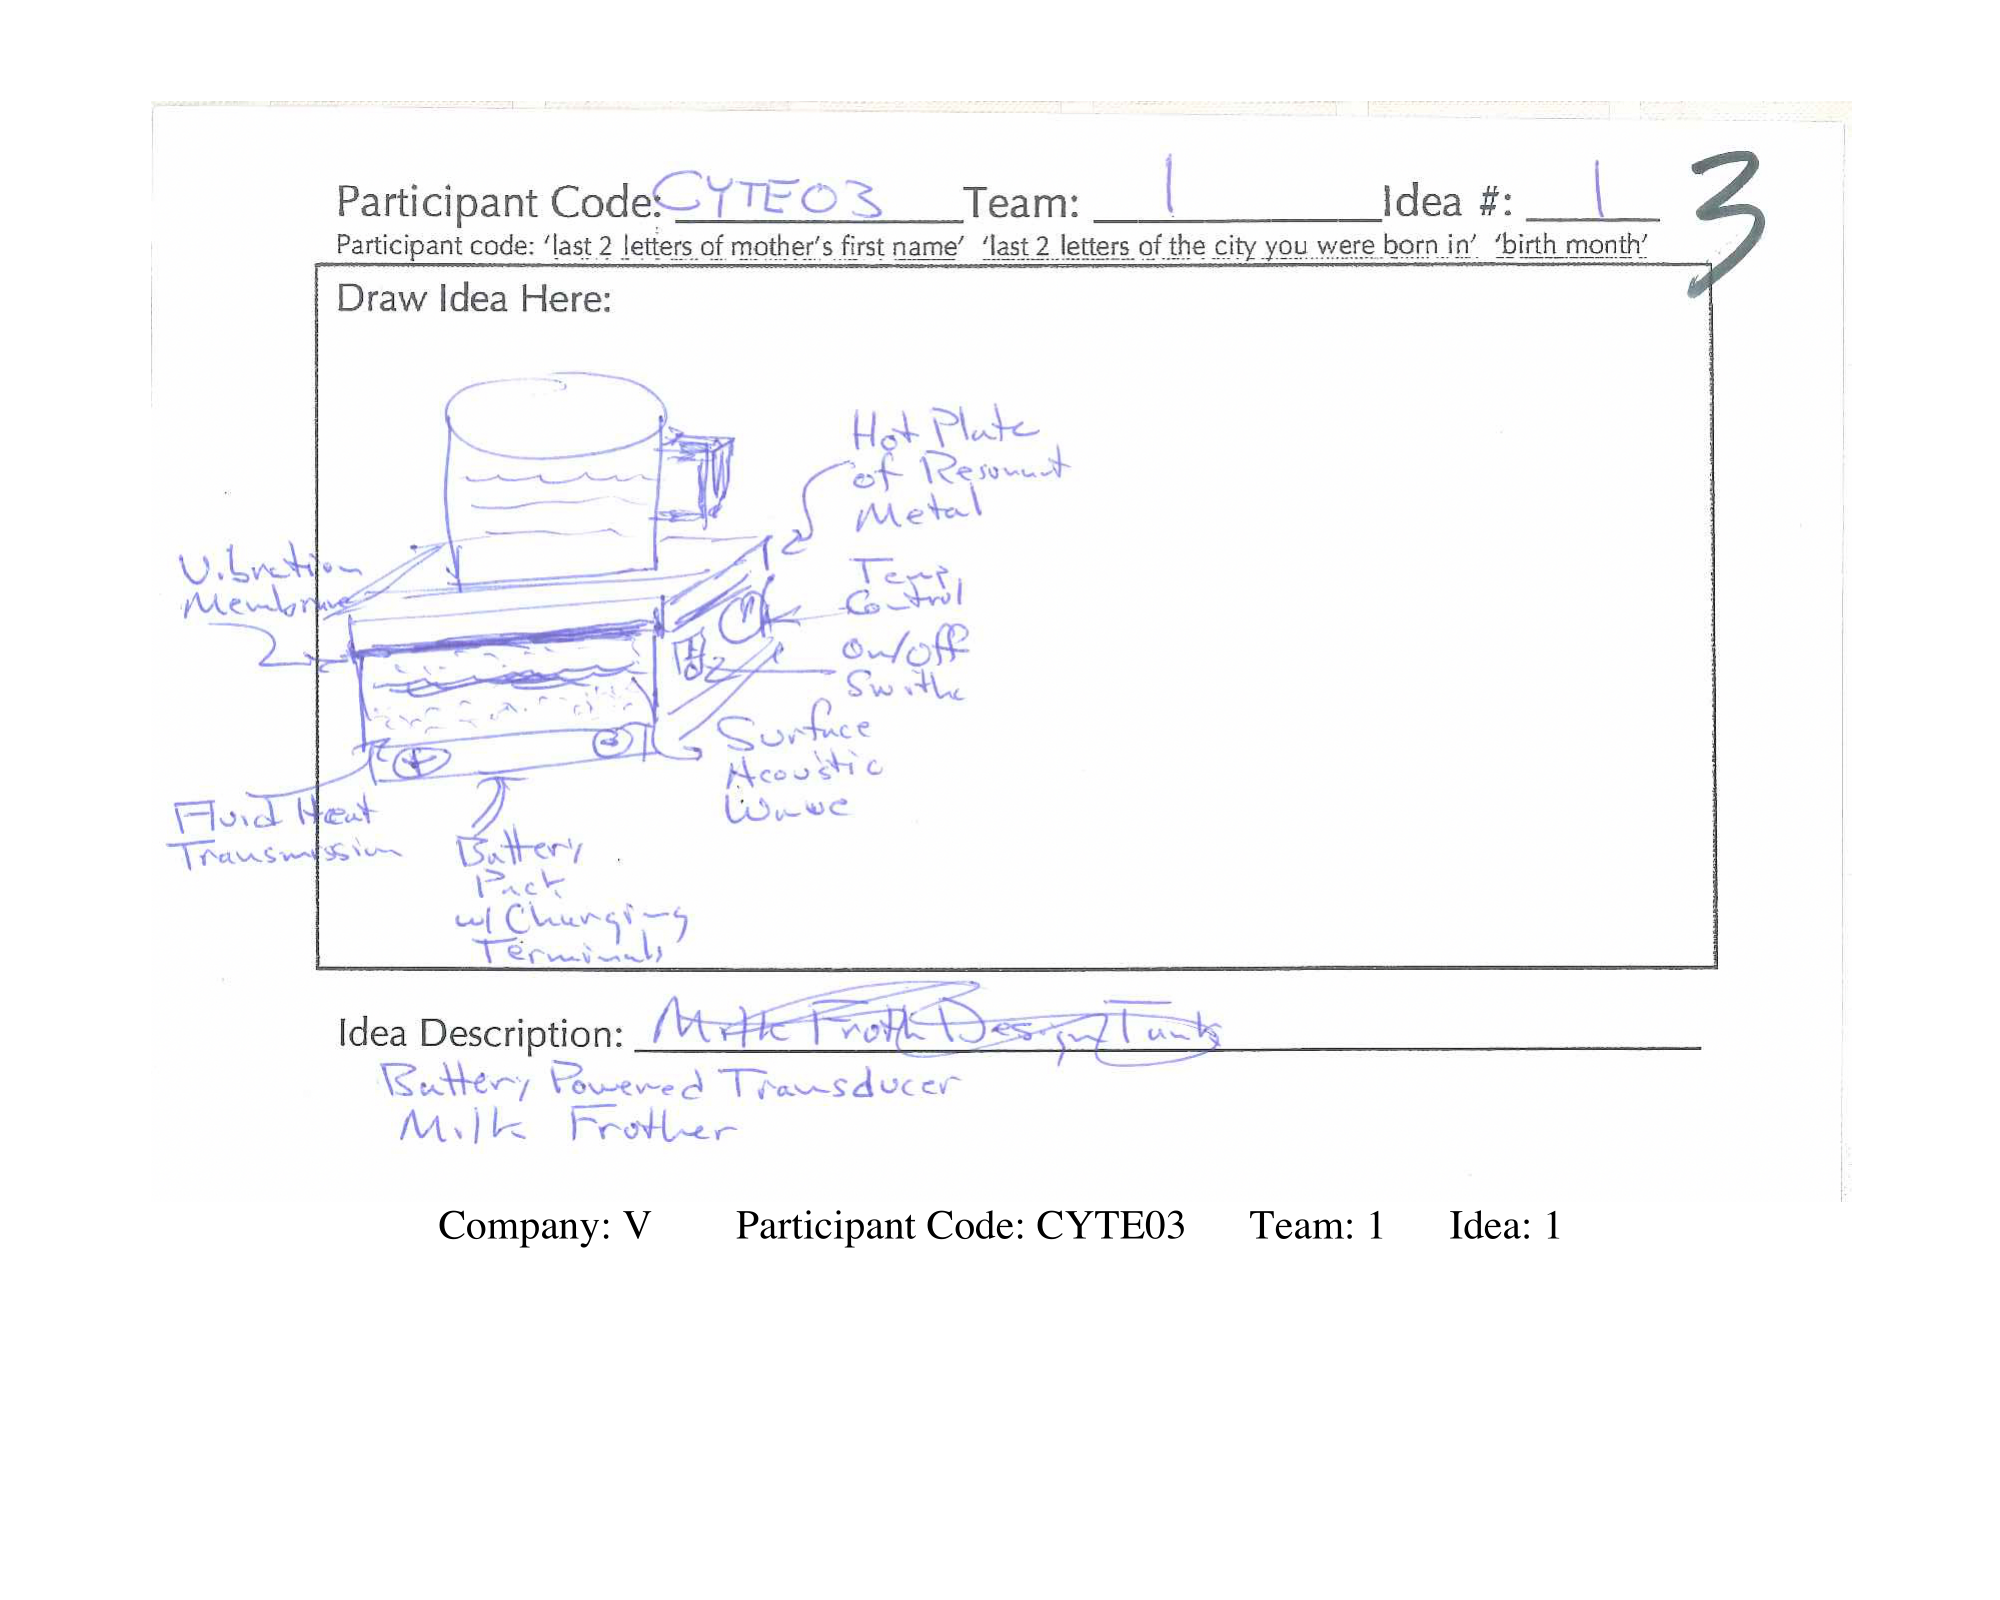 Participant Code: CYTE03 Team: 1 Idea #: 1 3
Participant code: 'last 2 letters of mother's first name' 'last 2 letters of the city you were born in' 'birth month'
Draw Idea Here:
Hot Plate
of Resonant
Metal
Vibration
Membrane
Temp.
Control
On/Off
Swithc
Surface
Acoustic
Wave
Fluid Heat
Transmission
Battery
Pack
w/ Charging
Terminals
+
Idea Description: Milk Froth Design Tank
Battery Powered Transducer
Milk Frother
Company: V Participant Code: CYTE03 Team: 1 Idea: 1